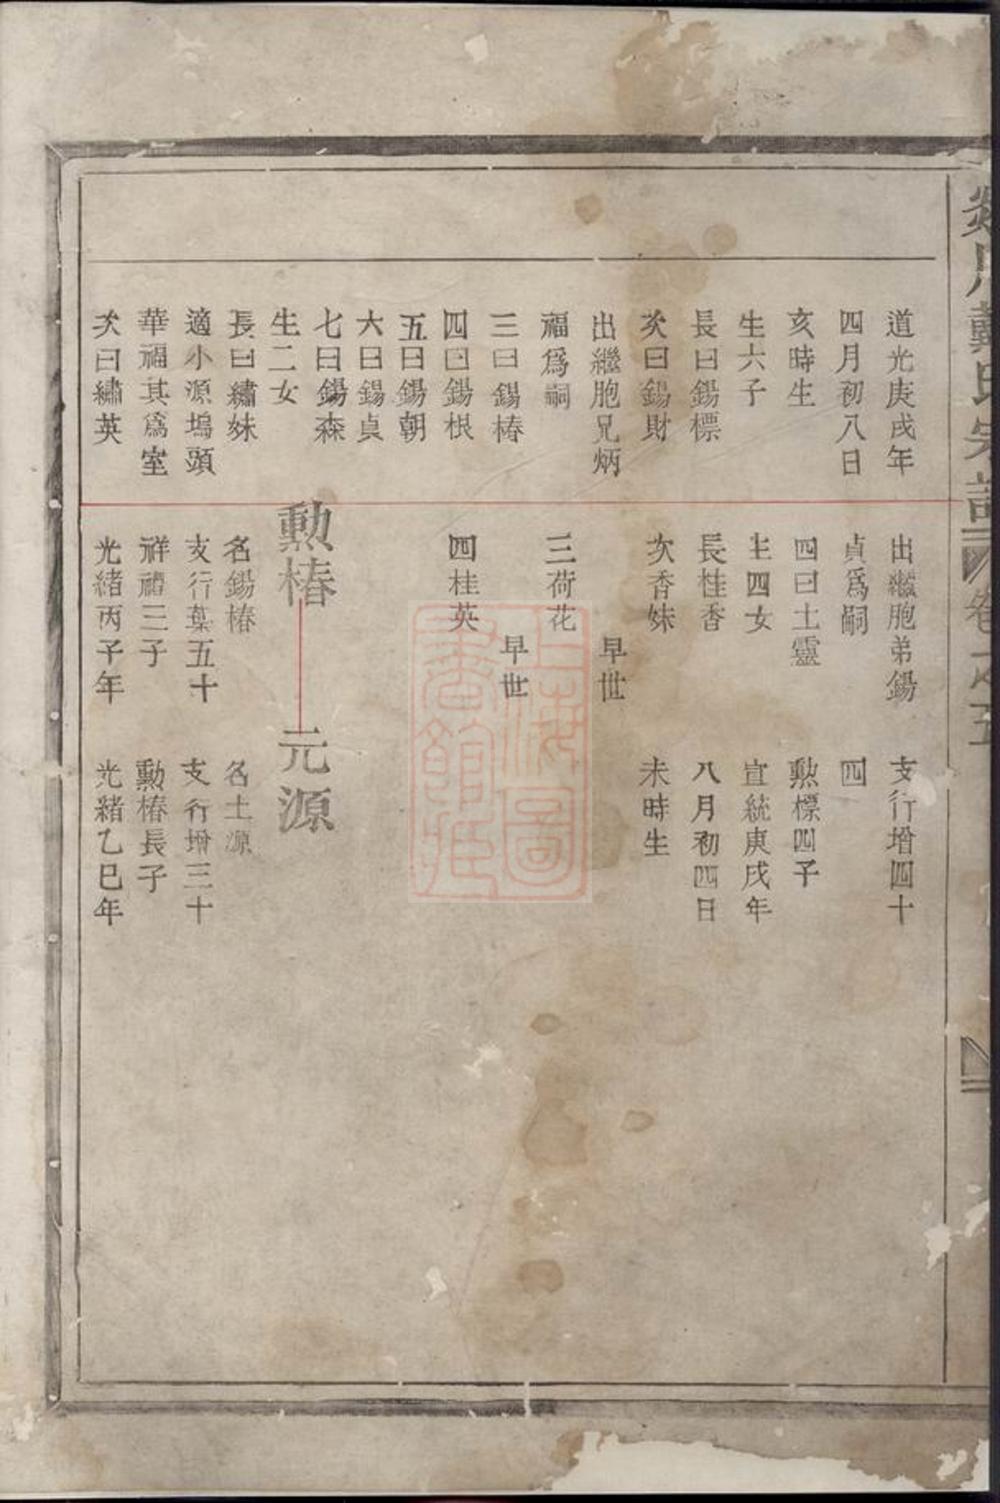 道光庚戌年
四月初八日
亥時生
生六子
長曰錫標
次曰錫財
出繼胞兄炳
福爲嗣
三曰錫椿
四曰錫根
五曰錫朝
六曰錫貞
七曰錫森
生二女
長曰繡妹
適小源塢頭
華福其爲室
次曰繡英
出繼胞弟錫
貞爲嗣
四曰土靈
生四女
長桂香
次香妹
三荷花
早世
四桂英
早世
勲椿
名錫椿
支行葉五十
祥禧三子
光緒丙子年
支行增四十
四
勲標四子
宣統庚戌年
八月初四日
未時生
元源
名土源
支行增三十
勲椿長子
光緒乙巳年
戴氏宗譜
卷之五
上海圖書館藏